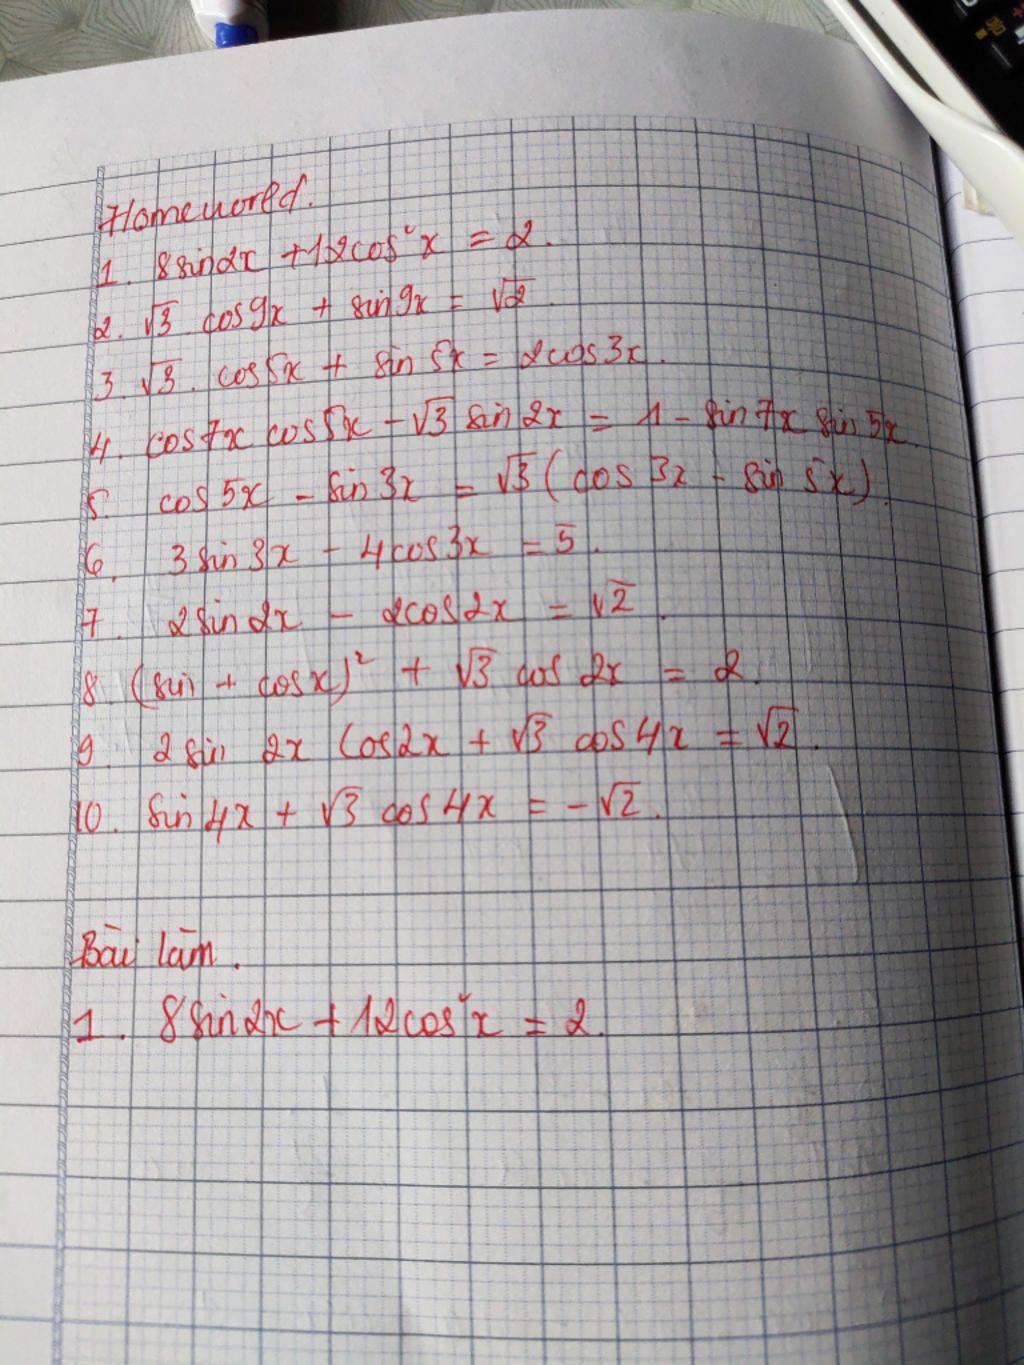 Homeword.
1. 8 sin2x + 12cos²x = 2.
2. √3 cos9x + sin9x = √2.
3. √3. cos5x + sin 5x = 2cos3x.
4. cos7x cos5x - √3 sin2x = 1 - sin7x sin5x.
5. cos5x - sin3x = √3 (cos 3x - sin 5x).
6. 3 sin3x - 4cos3x = 5.
7. 2 sin2x - 2cos2x = √2.
8. (sin + cosx)² + √3 cos 2x = 2.
9. 2 sin 2x cos2x + √3 cos4x = √2.
10. sin4x + √3 cos4x = -√2.
Bài làm.
1. 8 sin2x + 12cos²x = 2.